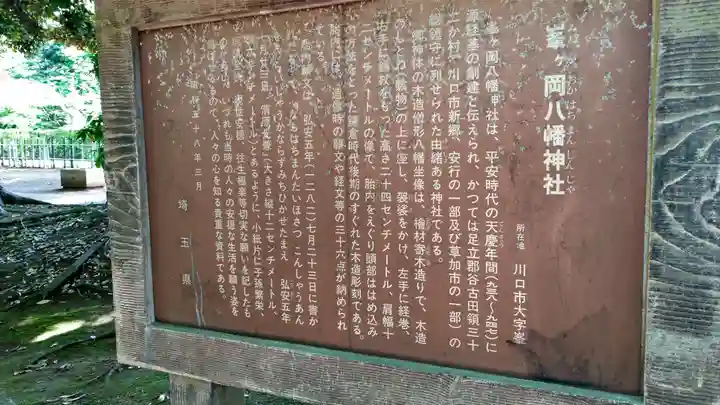 峯ヶ岡八幡神社
所在地 川口市大字峯
峯ヶ岡八幡神社は、平安時代の天慶年間(九三八〜九四七)に
源経基の創建と伝えられ、かつては足立郡谷古田領三十
二か村(川口市新郷、安行の一部及び草加市の一部)の
総鎮守に列せられた由緒ある神社である。
御神体の木造僧形八幡坐像は、檜材寄木造りで、木造
のしとね(敷物)の上に座し、袈裟をかけ、左手に経巻、
右手に をもった高さ二十四センチメートル、肩幅十
七センチメートルの像で、胎内をえぐり頭部ははめ込み
の方法をとった鎌倉時代後期のすぐれた木造彫刻である。
胎内には、造像時の願文や経文等の三十六点が納められ
ている。
願文は、弘安五年(一二八二)七月二十三日に書か
はちまんたいほさつ こんしゃうあん
かならずみちひかせたまえ 弘安五年
七月廿三日 (大きさ縦十二センチメートル、
とあるように、小紙片に子孫繁栄、
、往生極楽等切実な願いを記したも
いづれも当時の人々の安穏な生活を願う姿を
ので、人々の心を知る貴重な資料である。
昭和五十八年三月
埼玉県